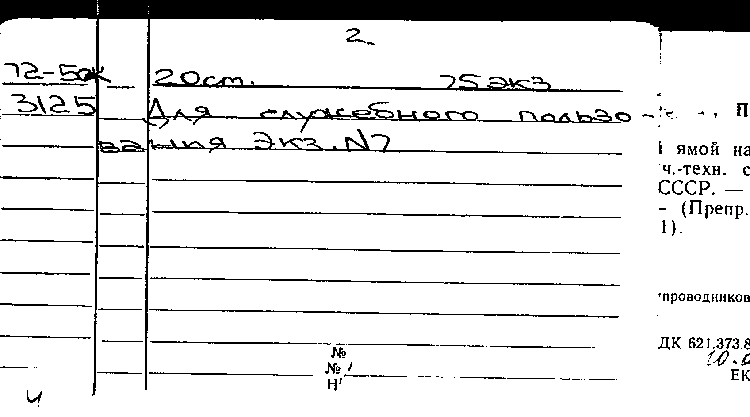 2
72-5ок 20ст. 75 экз
3125 Для служебного пользо-
вания Экз. N7
№
№
4
П
ямой на
ч.-техн. с
СССР. —
- (Препр.
1).
проводников
ДК 621.373.8
ЕК